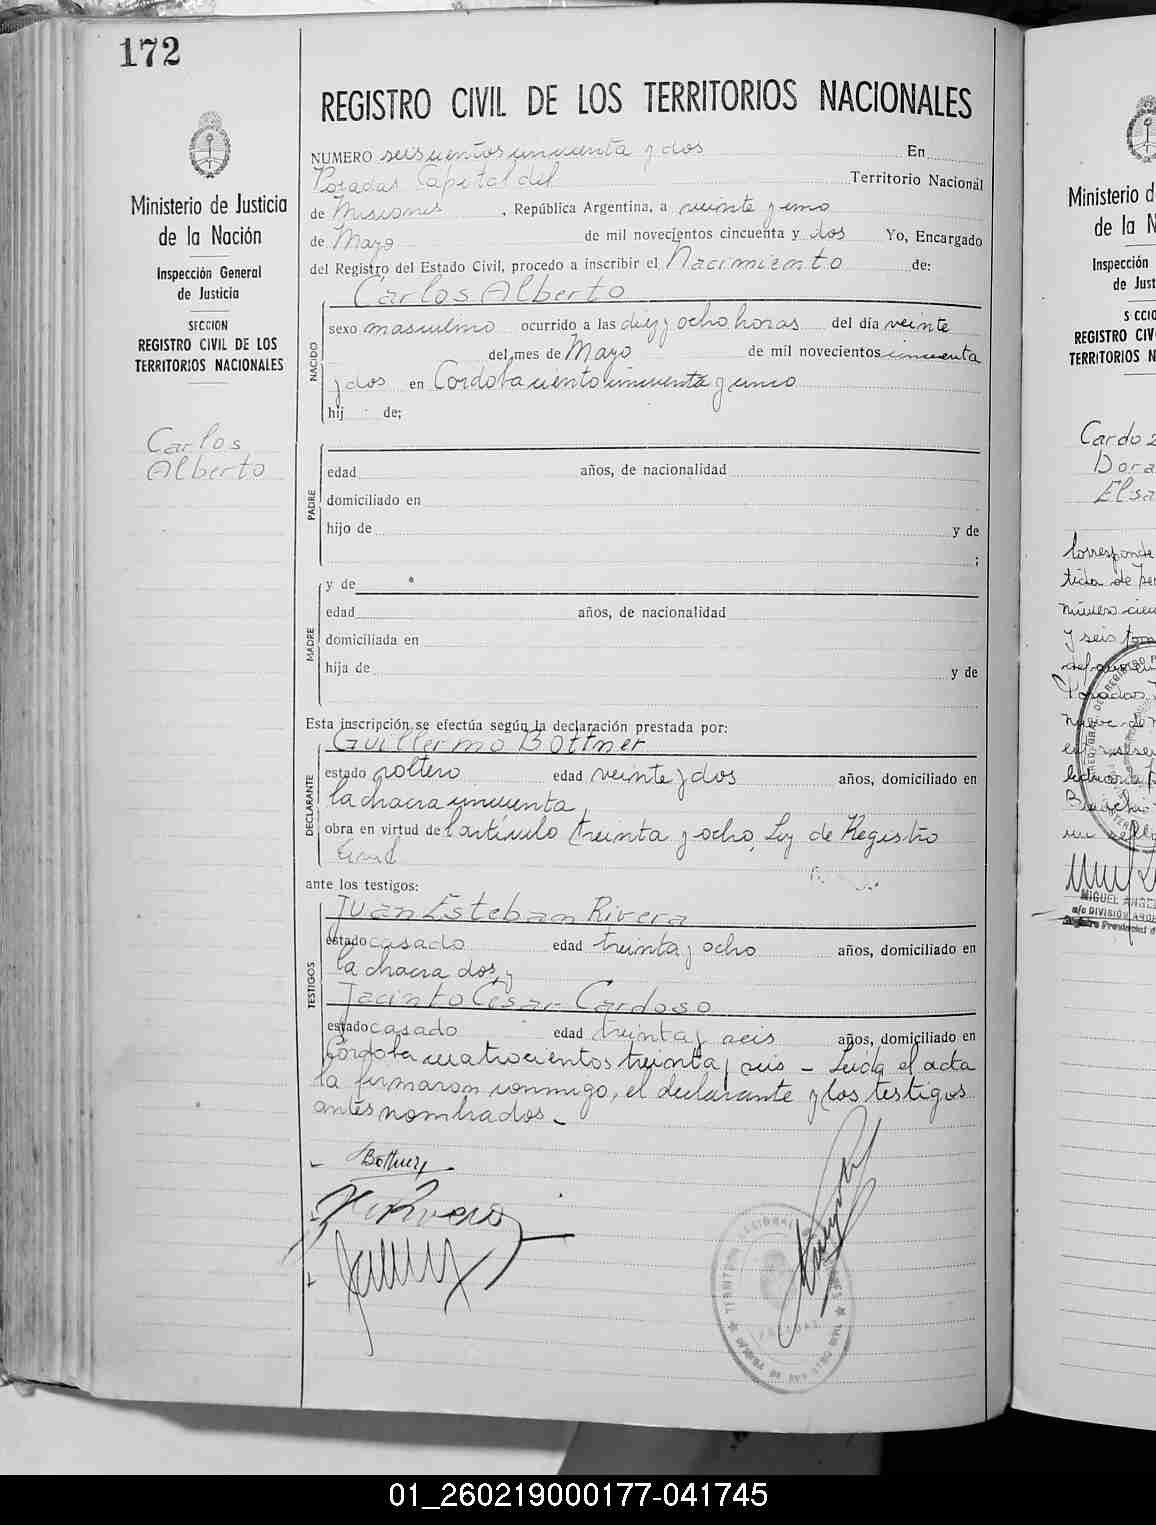 172
REGISTRO CIVIL DE LOS TERRITORIOS NACIONALES
Ministerio de Justicia
de la Nación
Inspección General
de Justicia
SECCION
REGISTRO CIVIL DE LOS
TERRITORIOS NACIONALES
Carlos
Alberto
NUMERO seiscientos cincuenta y dos En
Posadas Capital del Territorio Nacional
de Misiones, República Argentina, a veinte y uno
de Mayo de mil novecientos cincuenta y dos Yo, Encargado
del Registro del Estado Civil, procedo a inscribir el Nacimiento de:
Carlos Alberto
NACIDO
sexo masculino ocurrido a las diez y ocho horas del día veinte
del mes de Mayo de mil novecientos cincuenta
y dos en Cordoba ciento cincuenta y uno
hij de;
PADRE
edad años, de nacionalidad
domiciliado en
hijo de y de
;
MADRE
y de
edad años, de nacionalidad
domiciliada en
hija de y de
Esta inscripción se efectúa según la declaración prestada por:
Guillermo Bottner
DECLARANTE
estado soltero edad veinte y dos años, domiciliado en
la chacra cincuenta,
obra en virtud del artículo treinta y ocho, Ley de Registro
Civil
ante los testigos:
Juan Esteban Rivera
TESTIGOS
estado casado edad treinta y ocho años, domiciliado en
la chacra dos, y
Jacinto César Cardoso
estado casado edad treinta y seis años, domiciliado en
Córdoba cuatrocientos treinta y seis - Leída el acta
la firmaron conmigo, el declarante y los testigos
antes nombrados.-
Bottner
Rivera
POSADAS
Ministerio d
de la N
Inspección
de Just
REGISTRO CIV
TERRITORIOS N
Cardoz
Dora
Elsa
Corresponde
tida de
número
y seis
Posadas
MIGUEL ANGE
a/c DIVISIÓN
01_260219000177-041745